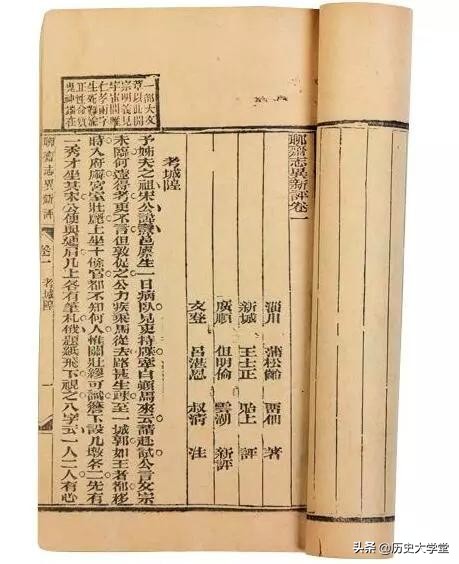 聊齋志異新評卷一
淄川 蒲松齡 畱仙 著
新城 王士正 貽上 評
廣順 但明倫 雲湖 新評
文登 呂湛恩 叔清 注
考城隍
一部大文
章以此開
宗明義見
宇宙間惟
仁孝兩字
生死難渝
正性命質
鬼神端在
予姊夫之祖宋公諱燾邑廩生一日病臥見吏持牒牽白顛馬來云請赴試公言文宗
未臨何遽得考吏不言但敦促之公力疾乘馬從去路甚生疎至一城郭如王者都移
時入府廨宮室壯麗上坐十餘官都不知何人惟關壯繆可識簷下設几墩各二先有
一秀才坐其末公便與連肩几上各有筆札俄題紙飛下視之八字云一人二人有心
聊齋志異新評 卷一 考城隍 一
头条 @历史大学堂